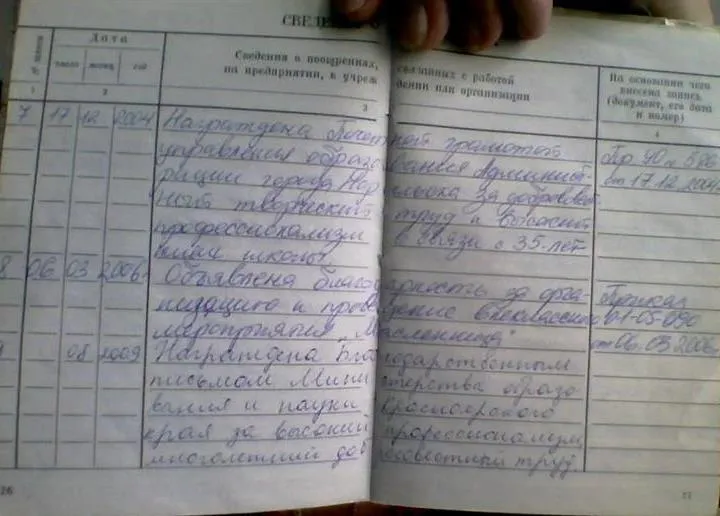 СВЕДЕ
Дата
число месяц год
Сведения о поощрениях, связанных с работой
на предприятии, в учреж дении или организации
На основании чего
внесена запись
(документ, его дата
и номер)
1 2 3 4
7 17 12 2004 Награждена Почет ной грамотой
управления образо вания Админист-
рации города Нор ильска за добросовест
ный творческий труд и высокий
профессионализм в связи с 35-лет
ием школы.
от 17.12.2004
8 06 03 2006г Объявлена благод арность за орга-
низацию и прове дение внеклассного
мероприятия „Масленница"
Приказ
01-05-090
от 06.03.2006г
08 2009 Награждена Бла годарственным
письмом Мини стерства образо
вания и науки Красноярского
края за высокий профессионализм,
многолетний доб росовестный труд.
26
27